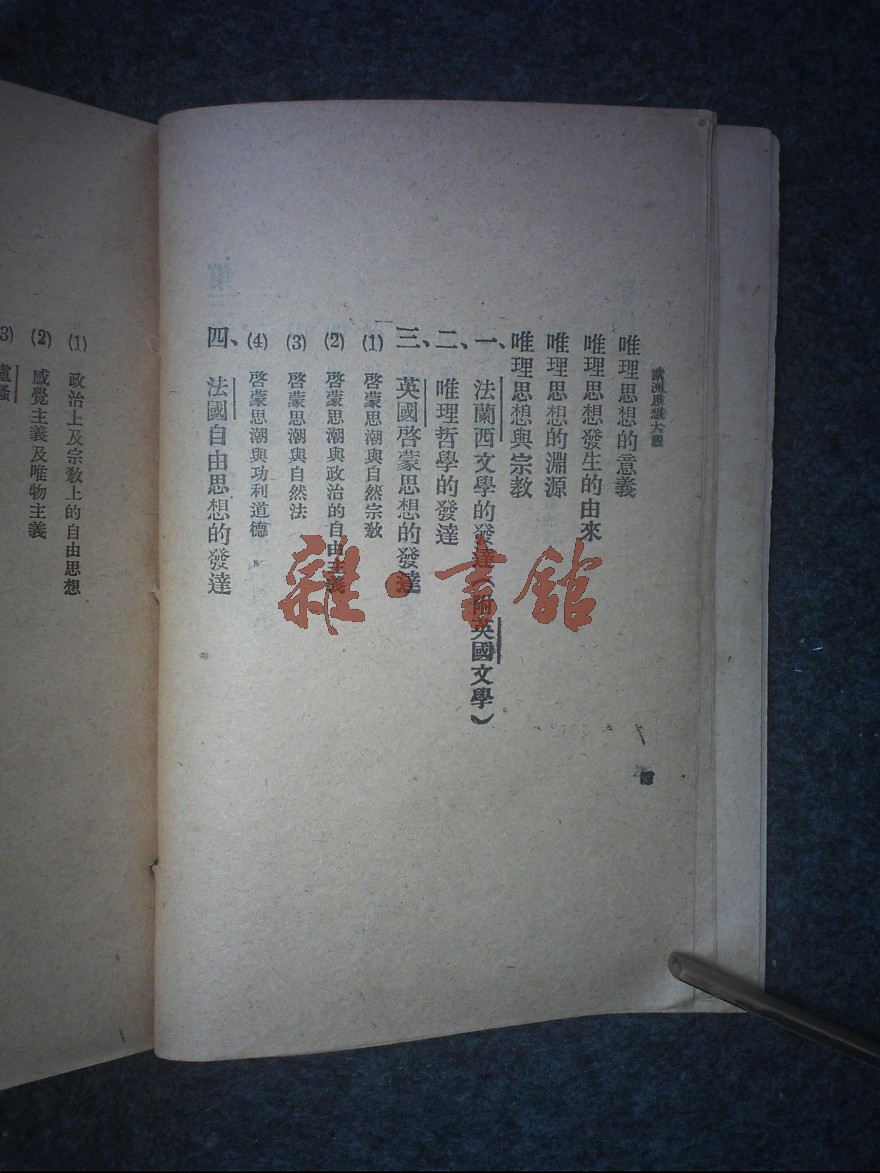 歐洲思想大觀
唯理思想的意義
唯理思想發生的由來
唯理思想的淵源
唯理思想與宗教
一、法蘭西文學的發達（附英國文學）
二、唯理哲學的發達
三、英國啓蒙思想的發達
(1) 啓蒙思潮與自然宗教
(2) 啓蒙思潮與政治的自由主義
(3) 啓蒙思潮與自然法
(4) 啓蒙思潮與功利道德
四、法國自由思想的發達
四
(1) 政治上及宗敎上的自由思想
(2) 感覺主義及唯物主義
(3) 盧騷
雜·書館